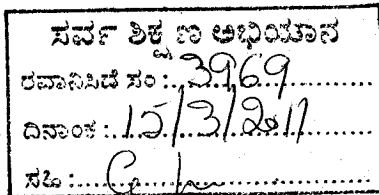 ಸರ್ವ ಶಿಕ್ಷಣ ಅಭಿಯಾನ
ರವಾನಿಸಿದೆ ಸಂ: 3969
ದಿನಾಂಕ: 15/3/2011
ಸಹಿ: